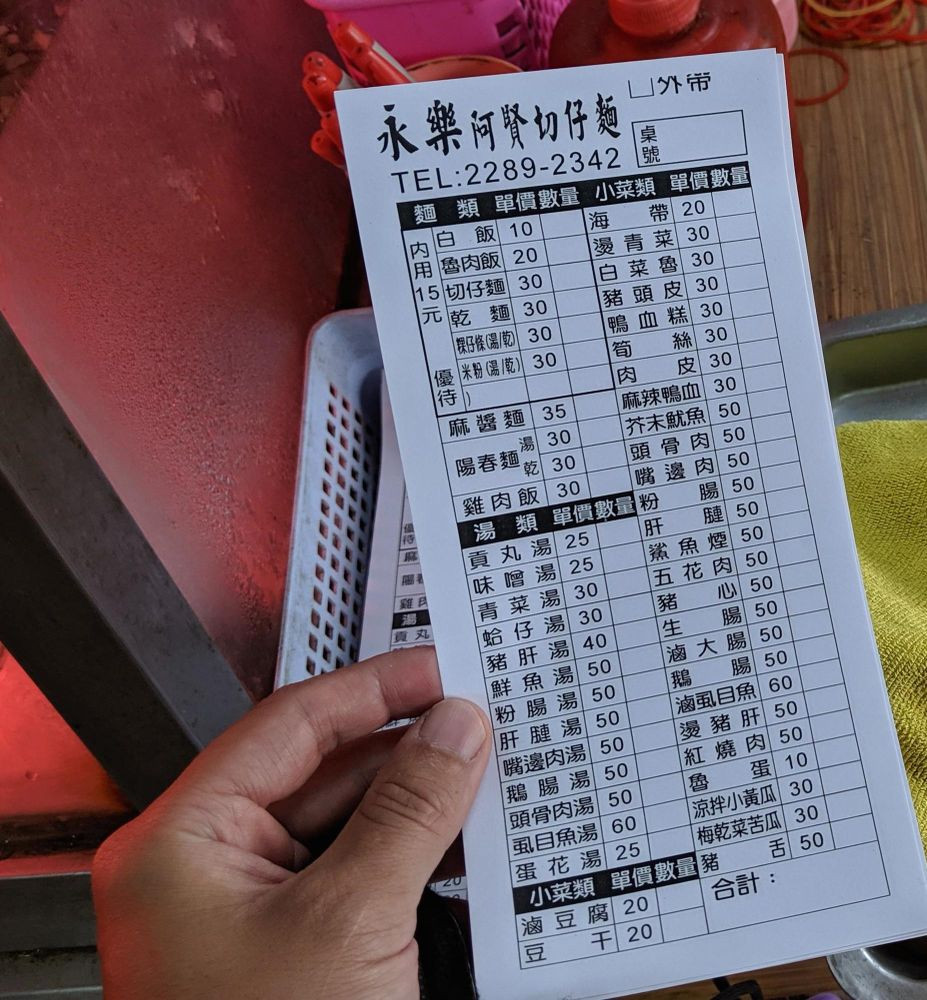 外帶
永樂阿賢切仔麵
桌號
TEL:2289-2342
麵類 單價 數量
內用15元優待
白飯 10
魯肉飯 20
切仔麵 30
乾麵 30
粿仔條(湯/乾) 30
米粉(湯/乾) 30
)
麻醬麵 35
陽春麵 湯 30
乾 30
雞肉飯 30
湯類 單價 數量
貢丸湯 25
味噌湯 25
青菜湯 30
蛤仔湯 30
豬肝湯 40
鮮魚湯 50
粉腸湯 50
肝腱湯 50
嘴邊肉湯 50
鵝腸湯 50
頭骨肉湯 50
虱目魚湯 60
蛋花湯 25
小菜類 單價 數量
滷豆腐 20
豆干 20
小菜類 單價 數量
海帶 20
燙青菜 30
白菜魯 30
豬頭皮 30
鴨血糕 30
筍絲 30
肉皮 30
麻辣鴨血 30
芥末魷魚 50
頭骨肉 50
嘴邊肉 50
粉腸 50
肝腱 50
鯊魚煙 50
五花肉 50
豬心 50
生腸 50
滷大腸 50
鵝腸 50
滷虱目魚 60
燙豬肝 50
紅燒肉 50
魯蛋 10
涼拌小黃瓜 30
梅乾菜苦瓜 30
豬舌 50
合計：
待
麻
陽春
雞肉
湯
貢丸
20